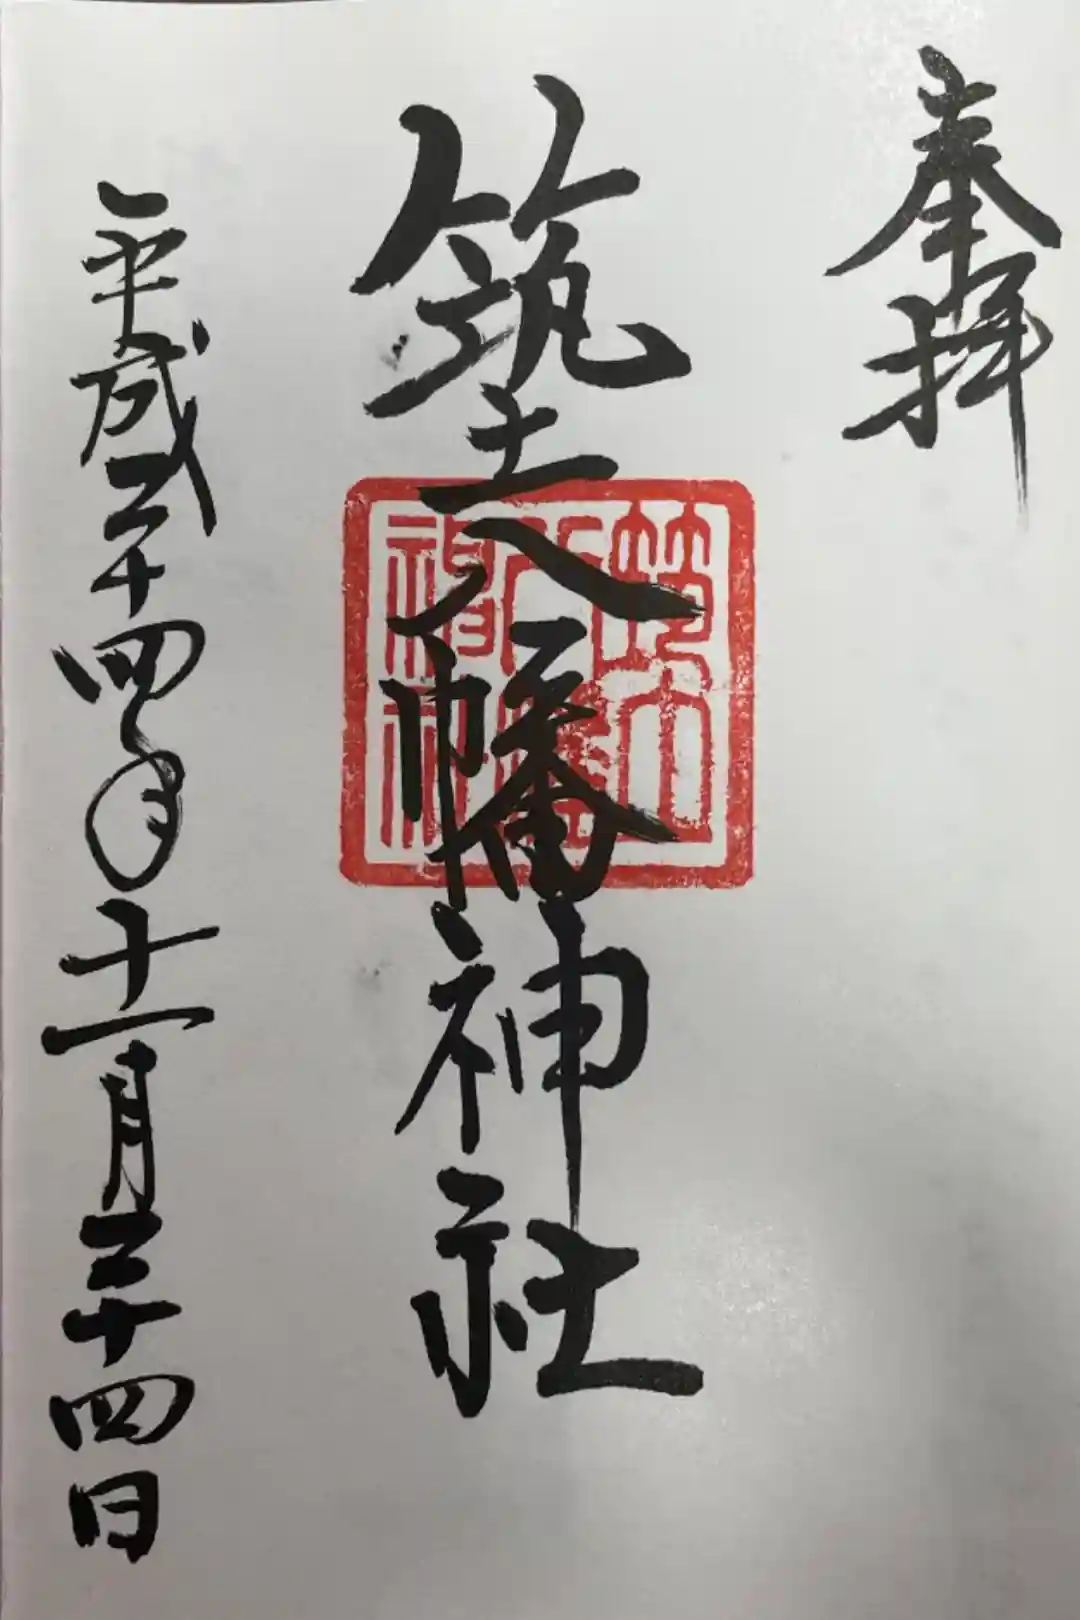 奉拝
筑土八幡神社
筑土
八幡
神社
平成二十四年十一月二十四日